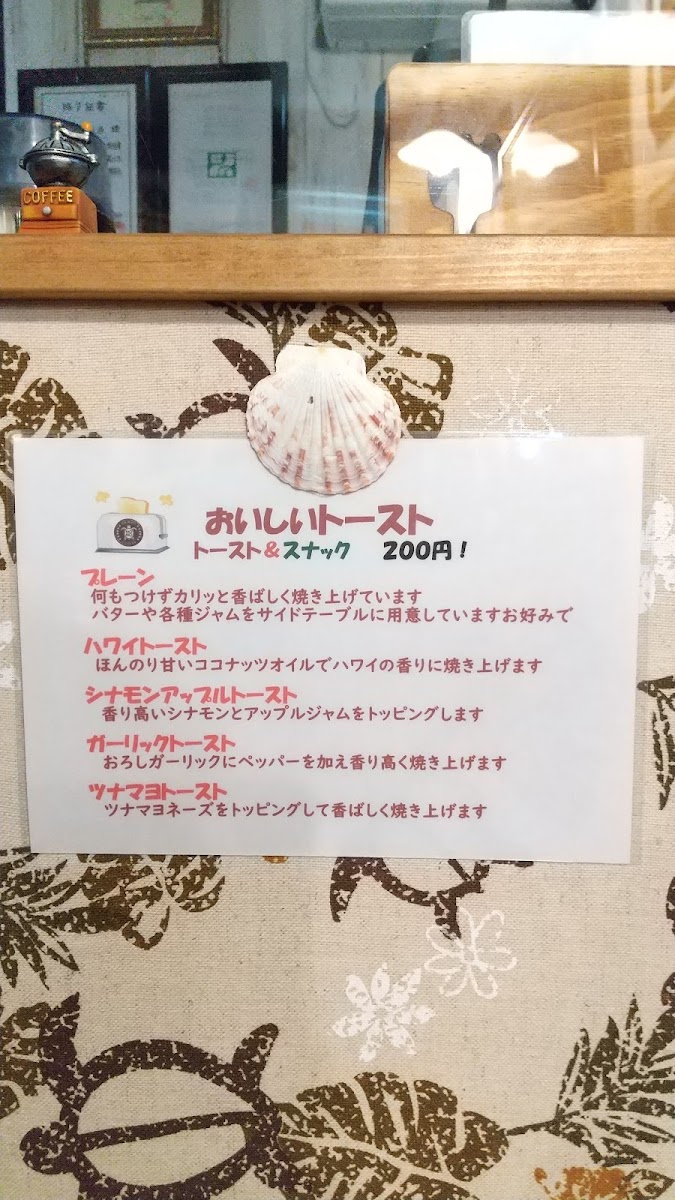 COFFEE
おいしいトースト
トースト&スナック 200円!
プレーン
何もつけずカリッと香ばしく焼き上げています
バターや各種ジャムをサイドテーブルに用意していますお好みで
ハワイトースト
ほんのり甘いココナッツオイルでハワイの香りに焼き上げます
シナモンアップルトースト
香り高いシナモンとアップルジャムをトッピングします
ガーリックトースト
おろしガーリックにペッパーを加え香り高く焼き上げます
ツナマヨトースト
ツナマヨネーズをトッピングして香ばしく焼き上げます